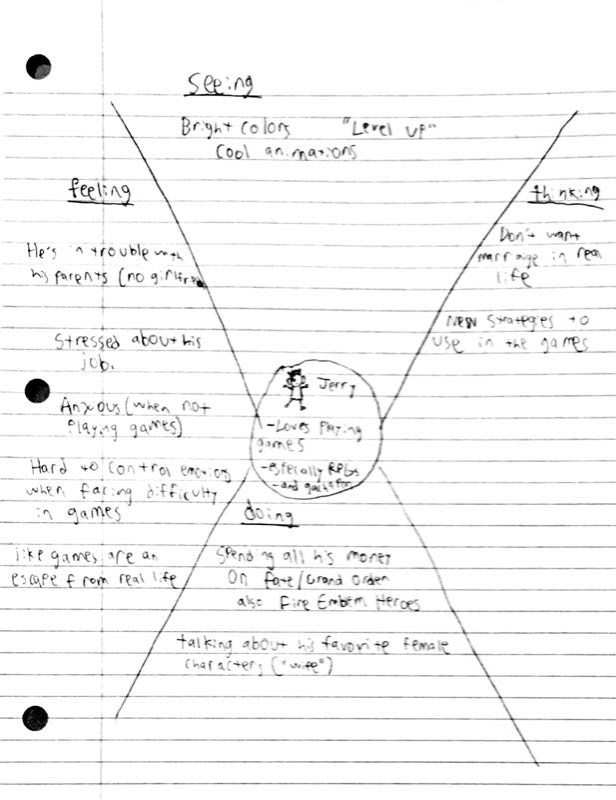 Seeing
Bright colors "Level up"
Cool animations
feeling
He's in trouble with
his parents (no girlfriend
Stressed about his
job.
Anxious (when not
Playing games)
Hard to control emotions
when facing difficulty
in games
like games are an
escape from real life
thinking
Don't want
marriage in real
life
New strategies to
use in the games
Jerry
-Loves Playing
games
-especially RPGs
-and gachapon
doing
Spending all his money
on Fate/Grand Order
also Fire Emblem Heroes
talking about his favorite female
characters ("wife")